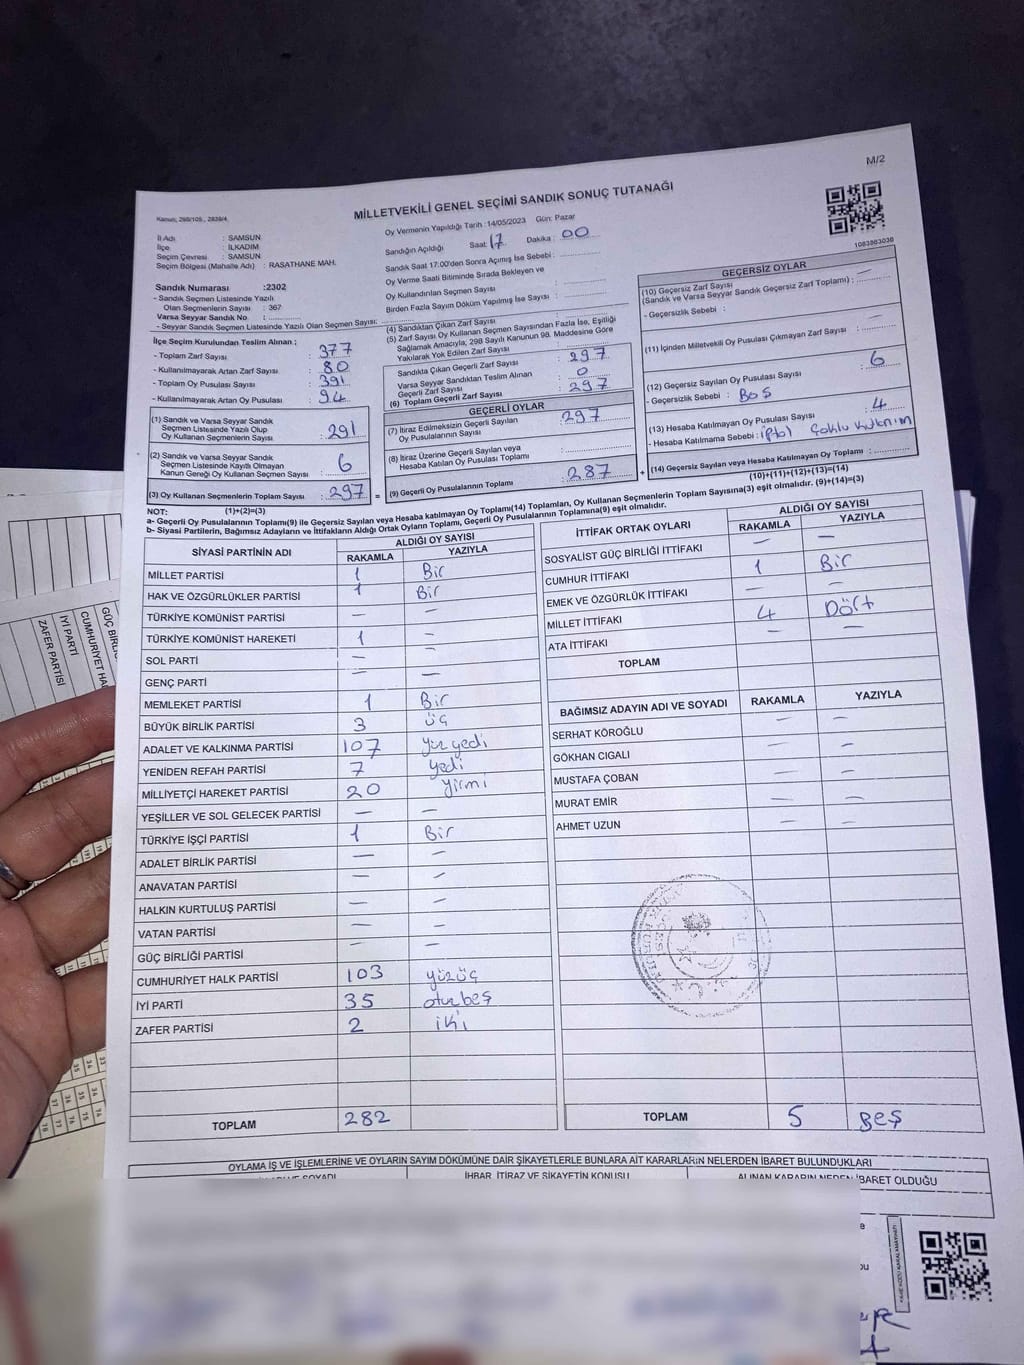 M/2
MİLLETVEKİLİ GENEL SEÇİMİ SANDIK SONUÇ TUTANAĞI
Kanun; 298/105., 2839/4
İl Adı : SAMSUN
İlçe : İLKADIM
Seçim Çevresi : SAMSUN
Seçim Bölgesi (Mahalle Adı) : RASATHANE MAH.
Sandık Numarası :2302
- Sandık Seçmen Listesinde Yazılı
Olan Seçmenlerin Sayısı : 367
Varsa Seyyar Sandık No :
- Seyyar Sandık Seçmen Listesinde Yazılı Olan Seçmen Sayısı:
İlçe Seçim Kurulundan Teslim Alınan ;
- Toplam Zarf Sayısı : 377
- Kullanılmayarak Artan Zarf Sayısı : 80
- Toplam Oy Pusulası Sayısı : 391
- Kullanılmayarak Artan Oy Pusulası : 94
(1) Sandık ve Varsa Seyyar Sandık
Seçmen Listesinde Yazılı Olup
Oy Kullanan Seçmenlerin Sayısı : 291
(2) Sandık ve Varsa Seyyar Sandık
Seçmen Listesinde Kayıtlı Olmayan
Kanun Gereği Oy Kullanan Seçmen Sayısı : 6
(3) Oy Kullanan Seçmenlerin Toplam Sayısı : 297
(1)+(2)=(3)
Oy Vermenin Yapıldığı Tarih :14/05/2023 Gün: Pazar
Sandığın Açıldığı Saat: 17 Dakika : 00
Sandık Saat 17:00'den Sonra Açılmış İse Sebebi :
Oy Verme Saati Bitiminde Sırada Bekleyen ve
Oy Kullandırılan Seçmen Sayısı :
Birden Fazla Sayım Döküm Yapılmış İse Sayısı :
(4) Sandıktan Çıkan Zarf Sayısı
(5) Zarf Sayısı Oy Kullanan Seçmen Sayısından Fazla İse, Eşitliği
Sağlamak Amacıyla, 298 Sayılı Kanunun 98. Maddesine Göre
Yakılarak Yok Edilen Zarf Sayısı
Sandıkta Çıkan Geçerli Zarf Sayısı : 297
Varsa Seyyar Sandıktan Teslim Alınan
Geçerli Zarf Sayısı : 0
(6) Toplam Geçerli Zarf Sayısı : 297
GEÇERLİ OYLAR
(7) İtiraz Edilmeksizin Geçerli Sayılan
Oy Pusulalarının Sayısı : 297
(8) İtiraz Üzerine Geçerli Sayılan veya
Hesaba Katılan Oy Pusulası Toplamı :
(9) Geçerli Oy Pusulalarının Toplamı : 287
1083863036
GEÇERSİZ OYLAR
(10) Geçersiz Zarf Sayısı
(Sandık ve Varsa Seyyar Sandık Geçersiz Zarf Toplamı) : —
- Geçersizlik Sebebi :
(11) İçinden Milletvekili Oy Pusulası Çıkmayan Zarf Sayısı : —
(12) Geçersiz Sayılan Oy Pusulası Sayısı : 6
- Geçersizlik Sebebi : BOŞ
(13) Hesaba Katılmayan Oy Pusulası Sayısı : 4
- Hesaba Katılmama Sebebi : iptal Çoklu kullanım
(14) Geçersiz Sayılan veya Hesaba Katılmayan Oy Toplamı :
(10)+(11)+(12)+(13)=(14)
NOT:
a- Geçerli Oy Pusulalarının Toplamı(9) ile Geçersiz Sayılan veya Hesaba katılmayan Oy Toplamı(14) Toplamları, Oy Kullanan Seçmenlerin Toplam Sayısına(3) eşit olmalıdır. (9)+(14)=(3)
b- Siyasi Partilerin, Bağımsız Adayların ve İttifakların Aldığı Ortak Oyların Toplamı, Geçerli Oy Pusulalarının Toplamına(9) eşit olmalıdır.
SİYASİ PARTİNİN ADI ALDIĞI OY SAYISI
RAKAMLA YAZIYLA
MİLLET PARTİSİ 1 Bir
HAK VE ÖZGÜRLÜKLER PARTİSİ 1 Bir
TÜRKİYE KOMÜNİST PARTİSİ — —
TÜRKİYE KOMÜNİST HAREKETİ 1 —
SOL PARTİ — —
GENÇ PARTİ — —
MEMLEKET PARTİSİ 1 Bir
BÜYÜK BİRLİK PARTİSİ 3 üç
ADALET VE KALKINMA PARTİSİ 107 yüz yedi
YENİDEN REFAH PARTİSİ 7 yedi
MİLLİYETÇİ HAREKET PARTİSİ 20 yirmi
YEŞİLLER VE SOL GELECEK PARTİSİ — —
TÜRKİYE İŞÇİ PARTİSİ 1 Bir
ADALET BİRLİK PARTİSİ — —
ANAVATAN PARTİSİ — —
HALKIN KURTULUŞ PARTİSİ — —
VATAN PARTİSİ — —
GÜÇ BİRLİĞİ PARTİSİ — —
CUMHURİYET HALK PARTİSİ 103 yüzüç
İYİ PARTİ 35 otuzbeş
ZAFER PARTİSİ 2 iki
TOPLAM 282
İTTİFAK ORTAK OYLARI ALDIĞI OY SAYISI
RAKAMLA YAZIYLA
SOSYALİST GÜÇ BİRLİĞİ İTTİFAKI — —
CUMHUR İTTİFAKI 1 Bir
EMEK VE ÖZGÜRLÜK İTTİFAKI — —
MİLLET İTTİFAKI 4 Dört
ATA İTTİFAKI — —
TOPLAM
BAĞIMSIZ ADAYIN ADI VE SOYADI RAKAMLA YAZIYLA
SERHAT KÖROĞLU — —
GÖKHAN CIGALI — —
MUSTAFA ÇOBAN — —
MURAT EMİR — —
AHMET UZUN — —
TOPLAM 5 BEŞ
OYLAMA İŞ VE İŞLEMLERİNE VE OYLARIN SAYIM DÖKÜMÜNE DAİR ŞİKAYETLERLE BUNLARA AİT KARARLARIN NELERDEN İBARET BULUNDUKLARI
İHBAR, İTİRAZ VE ŞİKAYETİN KONUSU
ALINAN KARARIN NEDEN İBARET OLDUĞU
İYİ PARTİ
ZAFER PARTİSİ